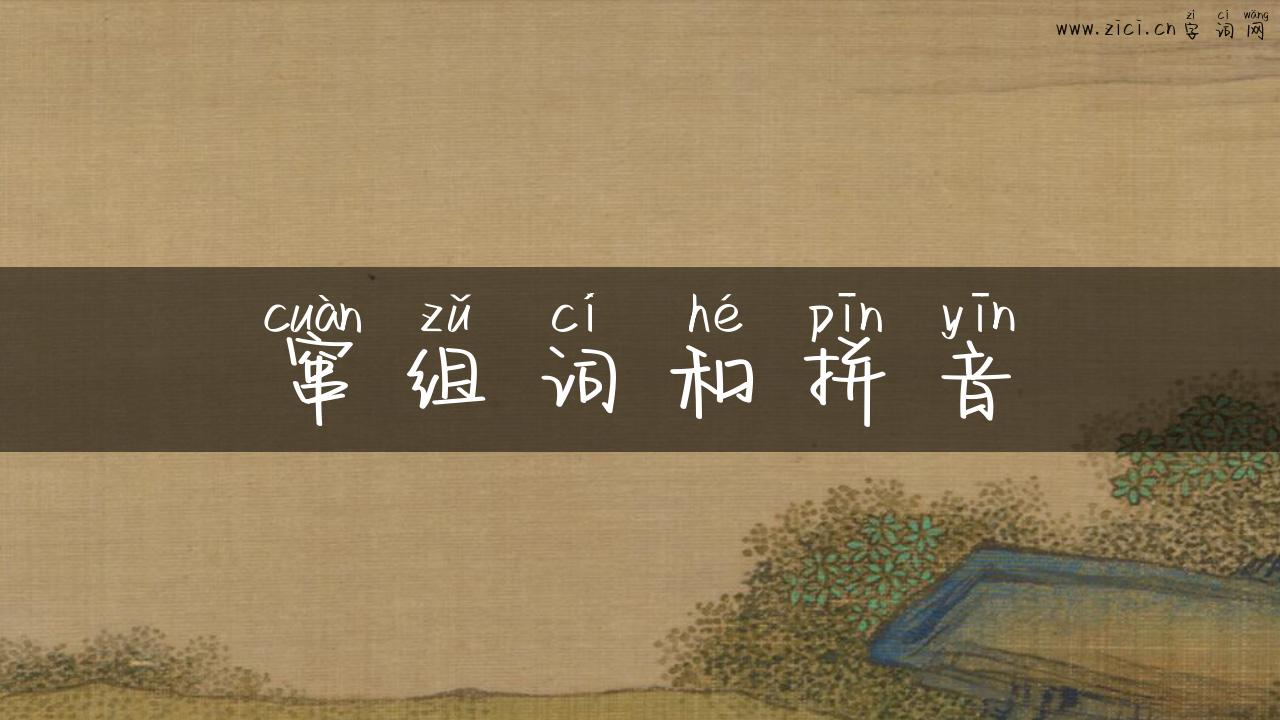 zì cí wǎng
www.zici.cn字词网
cuàn zǔ cí hé pīn yīn
窜组词和拼音